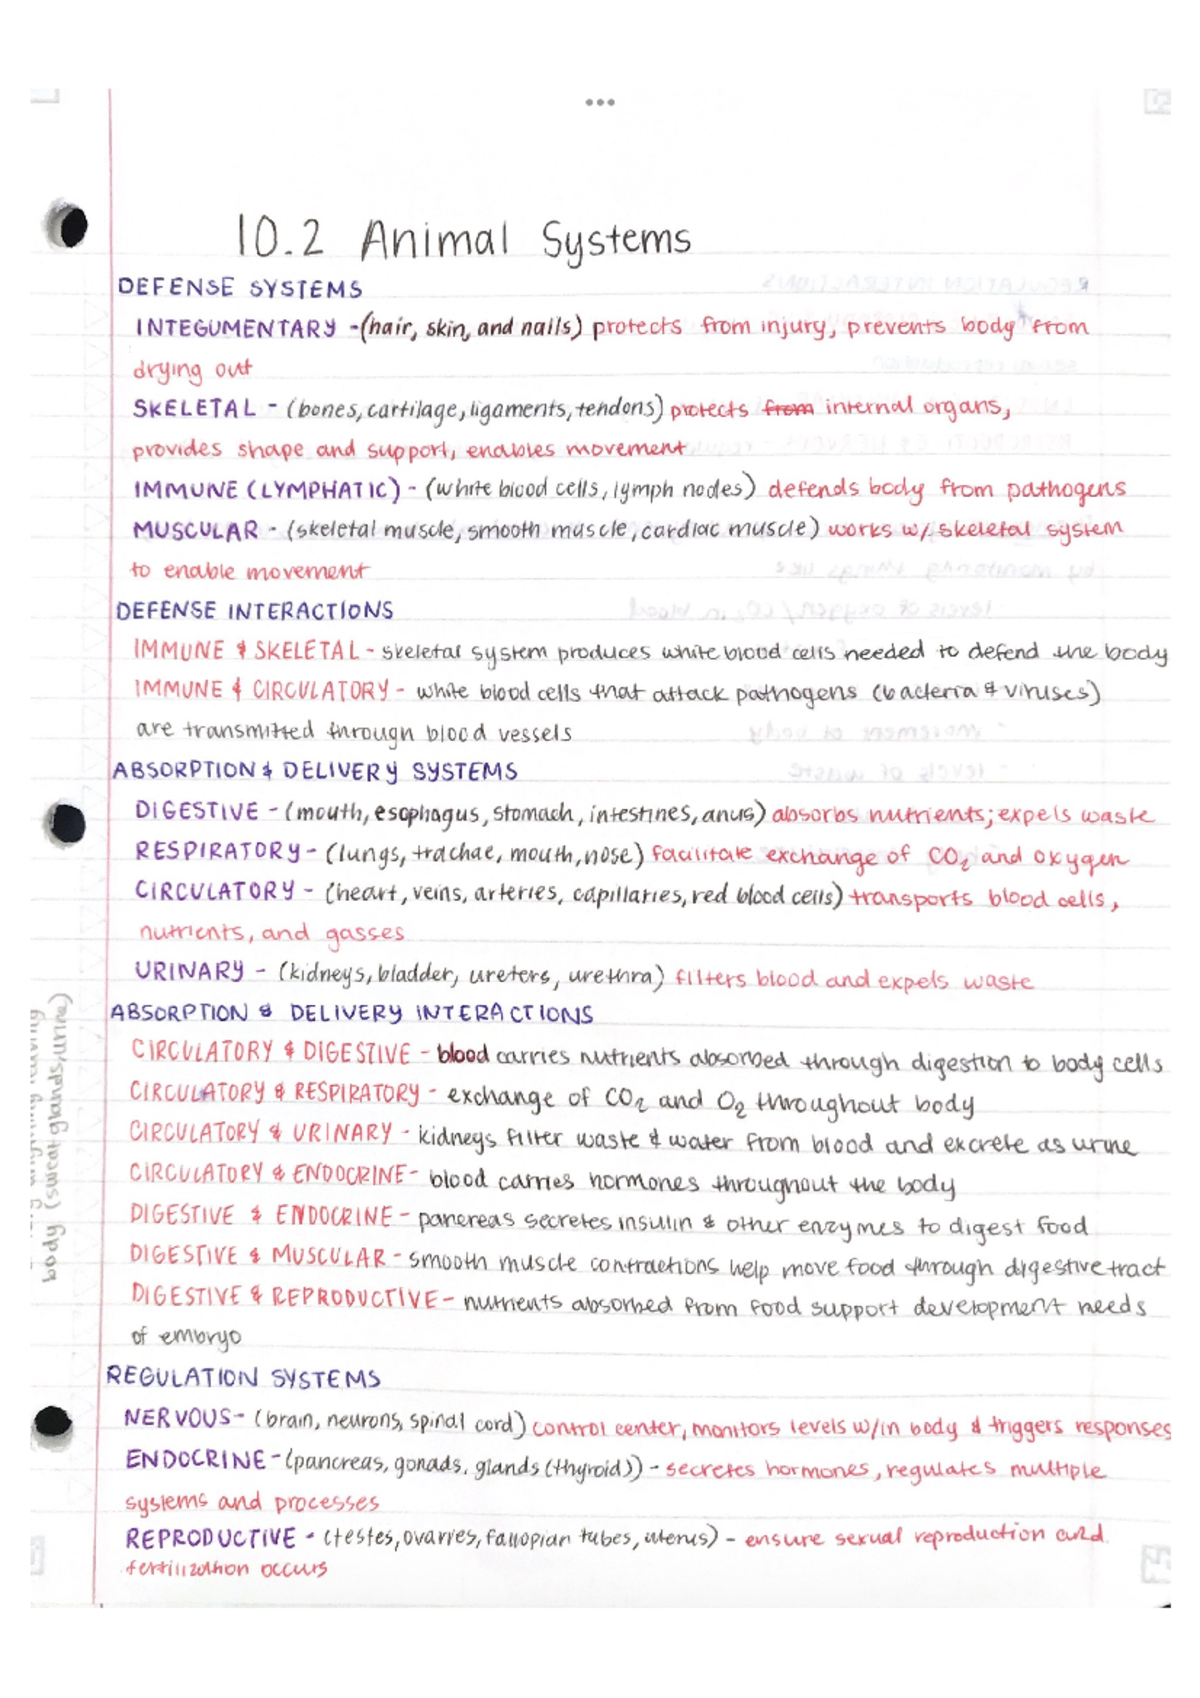 10.2 Animal Systems
DEFENSE SYSTEMS
INTEGUMENTARY -(hair, skin, and nails) protects from injury, prevents body from
drying out
SKELETAL - (bones, cartilage, ligaments, tendons) protects from internal organs,
provides shape and support, enables movement
IMMUNE (LYMPHATIC) - (white blood cells, lymph nodes) defends body from pathogens
MUSCULAR - (skeletal muscle, smooth muscle, cardiac muscle) works w/ skeletal system
to enable movement
DEFENSE INTERACTIONS
IMMUNE & SKELETAL - skeletal system produces white blood cells needed to defend the body
IMMUNE & CIRCULATORY - white blood cells that attack pathogens (bacteria & viruses)
are transmitted through blood vessels
ABSORPTION & DELIVERY SYSTEMS
DIGESTIVE - (mouth, esophagus, stomach, intestines, anus) absorbs nutrients; expels waste
RESPIRATORY - (lungs, trachae, mouth, nose) facilitate exchange of CO₂ and oxygen
CIRCULATORY - (heart, veins, arteries, capillaries, red blood cells) transports blood cells,
nutrients, and gasses
URINARY - (kidneys, bladder, ureters, urethra) filters blood and expels waste
ABSORPTION & DELIVERY INTERACTIONS
CIRCULATORY & DIGESTIVE - blood carries nutrients absorbed through digestion to body cells
CIRCULATORY & RESPIRATORY - exchange of CO₂ and O₂ throughout body
CIRCULATORY & URINARY - kidneys filter waste & water from blood and excrete as urine
CIRCULATORY & ENDOCRINE - blood carries hormones throughout the body
DIGESTIVE & ENDOCRINE - pancreas secretes insulin & other enzymes to digest food
DIGESTIVE & MUSCULAR - smooth muscle contractions help move food through digestive tract
DIGESTIVE & REPRODUCTIVE - nutrients absorbed from food support development needs
of embryo
REGULATION SYSTEMS
NERVOUS - (brain, neurons, spinal cord) control center, monitors levels w/in body & triggers responses
ENDOCRINE - (pancreas, gonads, glands (thyroid)) - secretes hormones, regulates multiple
systems and processes
REPRODUCTIVE - (testes, ovaries, fallopian tubes, uterus) - ensure sexual reproduction and
fertilization occurs
body (sweat glands, urine)